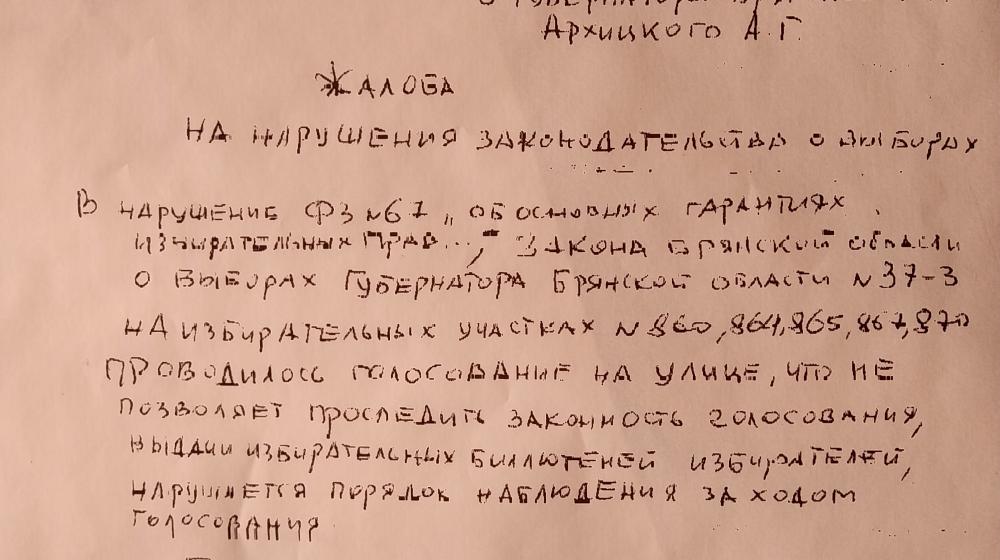 Губернатора
Архицкого А.Г.
Жалоба
на нарушения законодательства о выборах
В нарушение ФЗ №67 „Об основных гарантиях
избирательных прав...", Закона Брянской области
о выборах Губернатора Брянской области №37-З
на избирательных участках № 860, 864, 865, 867, 870
проводилось голосование на улице, что не
позволяет проследить законность голосования,
выдачи избирательных биллютеней избирателей,
нарушается порядок наблюдения за ходом
голосования